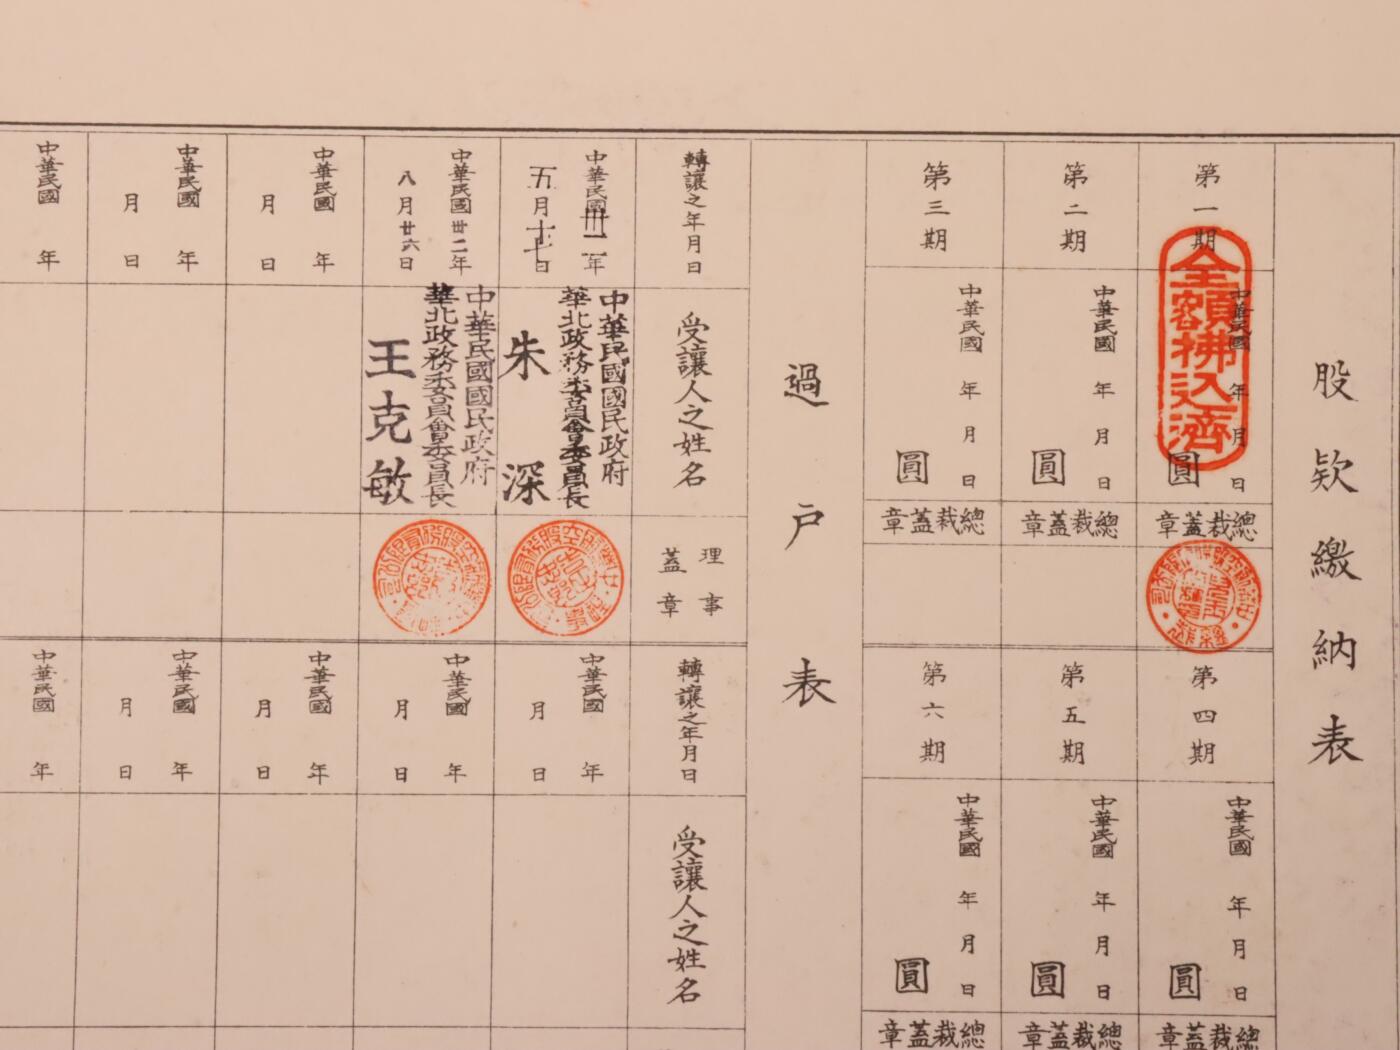 股欵繳納表
第一期
中華民國
年
月
日
圓
全額拂込濟
總裁蓋章
第二期
中華民國
年
月
日
圓
總裁蓋章
第三期
中華民國
年
月
日
圓
總裁蓋章
第四期
中華民國
年
月
日
圓
總裁蓋章
第五期
中華民國
年
月
日
圓
總裁蓋章
第六期
中華民國
年
月
日
圓
總裁蓋章
過戶表
轉讓之年月日
受讓人之姓名
理事
蓋章
中華民國卅二年
五月十七日
中華民國國民政府
華北政務委員會委員長
朱深
中華民國卅二年
八月廿六日
中華民國國民政府
華北政務委員會委員長
王克敏
中華民國 年
月 日
中華民國 年
月 日
中華民國 年
轉讓之年月日
受讓人之姓名
中華民國 年
月 日
中華民國 年
月 日
中華民國 年
月 日
中華民國 年
月 日
中華民國 年